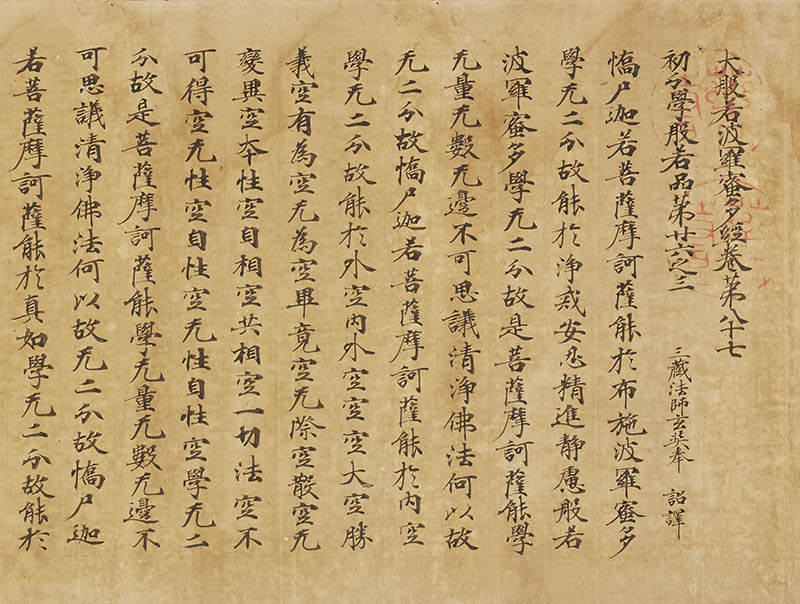 大般若波羅蜜多經卷第八十七
初分學般若品第廿六之三
三藏法師玄奘奉 詔譯
憍尸迦若菩薩摩訶薩能於布施波羅蜜多
學无二分故能於淨戒安忍精進靜慮般若
波羅蜜多學无二分故是菩薩摩訶薩能學
无量无數无邊不可思議清淨佛法何以故
无二分故憍尸迦若菩薩摩訶薩能於內空
學无二分故能於外空內外空空空大空勝
義空有為空无為空畢竟空无際空散空无
變異空本性空自相空共相空一切法空不
可得空无性空自性空无性自性空學无二
分故是菩薩摩訶薩能學无量无數无邊不
可思議清淨佛法何以故无二分故憍尸迦
若菩薩摩訶薩能於真如學无二分故能於